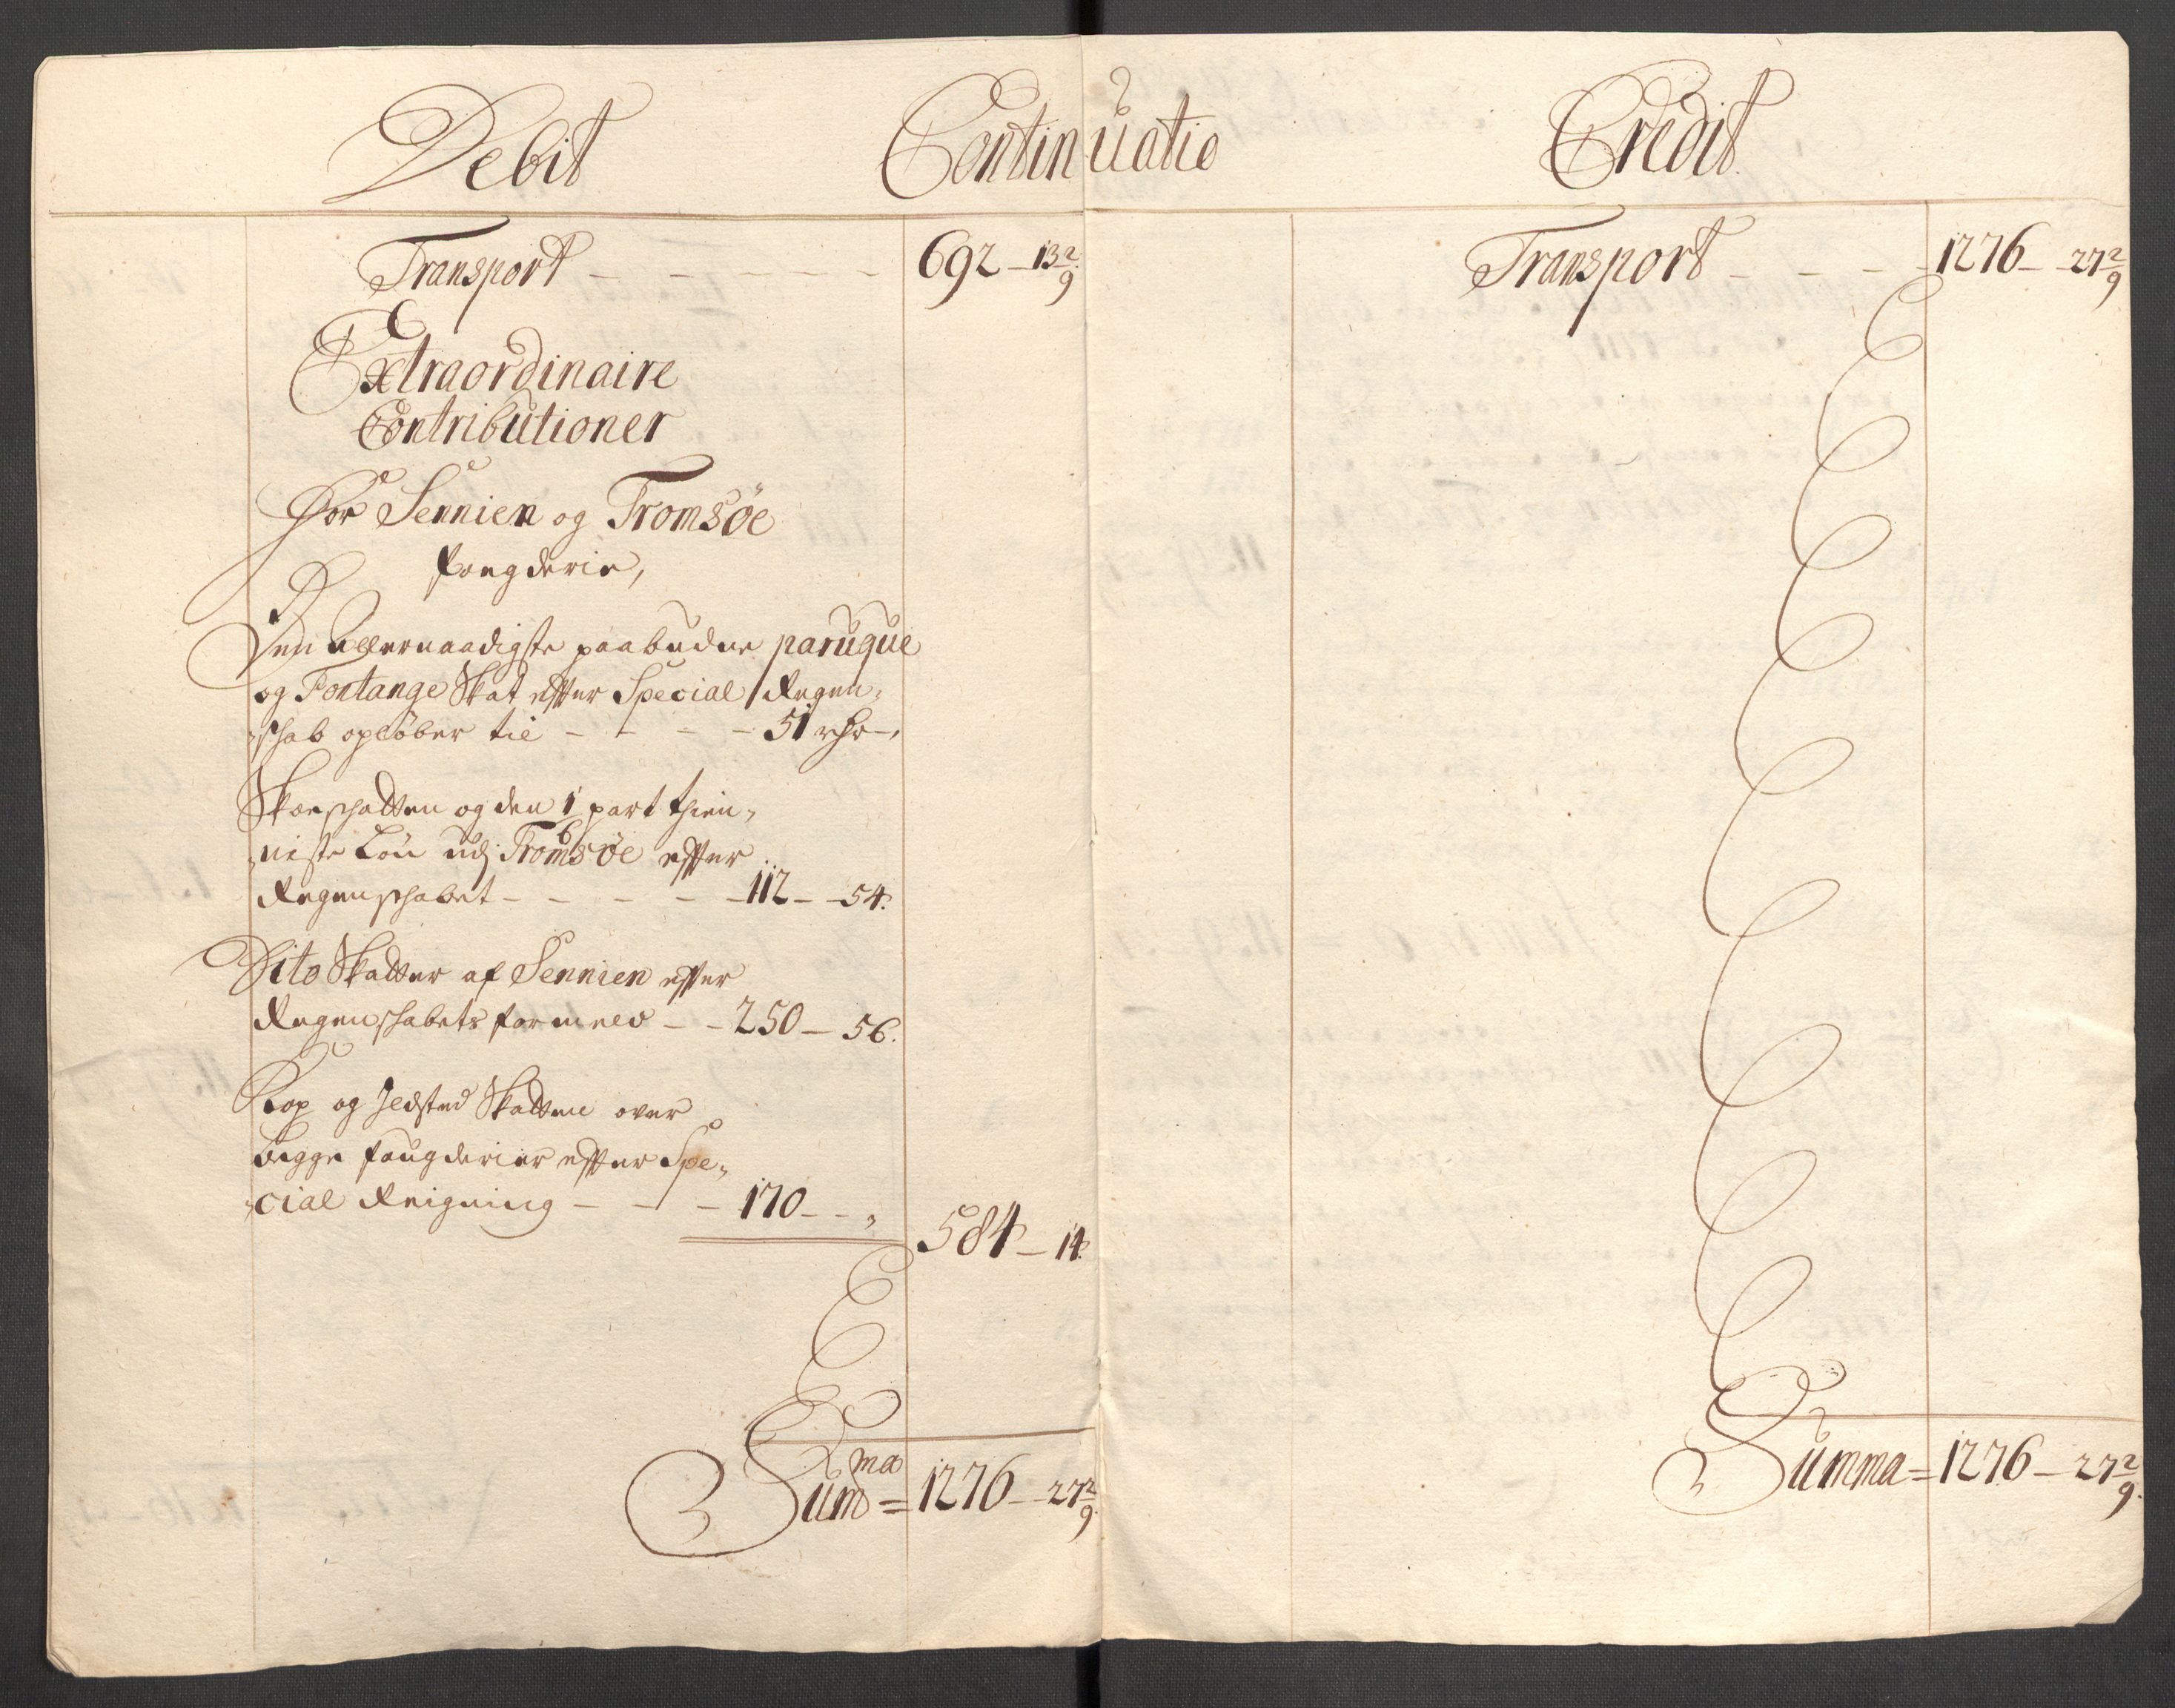 Debit Continuatio Credit.
Transport - - - - - 692 - 13 2/9
Extraordinaire
Contributioner
For Sennien og Tromsöe
fougderie,
Den allernaadigste paabudne paruque
og Fontange Skat effter Special Regen=
=schab opløber til - - - - 51 rdr -,
Skoeschatten og den 1/6 part thien=
=niste Løn udj Tromsöe effter
Regenschabet - - - - - 112 - 54.
Dito Skatter af Sennien effter
Regenschabets formeld - - 250 - 56.
Kop og Ildsted Skatten over
begge fougderier effter Spe=
=cial Reigning - - - 170 - - „
584 - 14.
Summa = 1276 - 27 2/9.
Transport - - - - 1276 - 27 2/9
Summa = 1276 - 27 2/9.